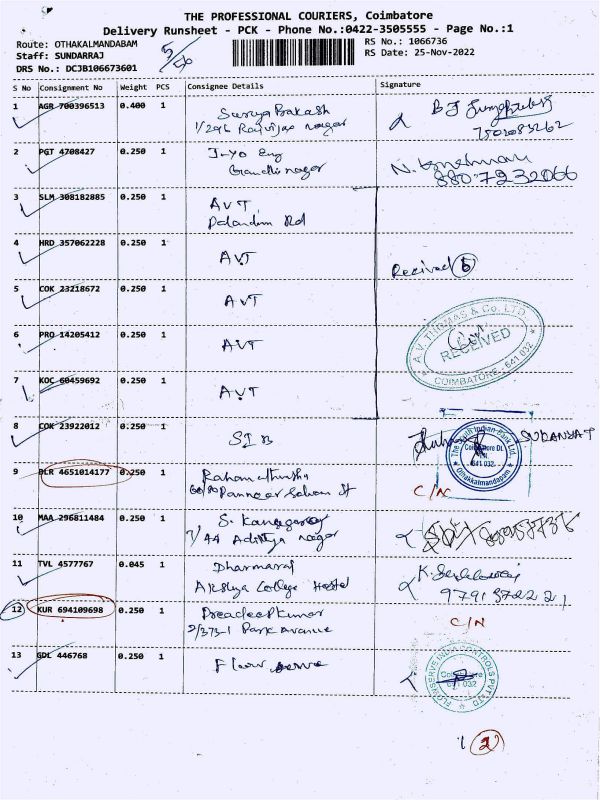 THE PROFESSIONAL COURIERS, Coimbatore
Delivery Runsheet - PCK - Phone No.:0422-3505555 - Page No.:1
Route: OTHAKALMANDABAM
RS No.: 1066736
Staff: SUNDARRAJ
RS Date: 25-Nov-2022
DRS No.: DCJB106673601
S No Consignment No Weight PCS Consignee Details Signature
1 AGR 700396513 0.400 1 Surya Prakash
1/296 nagar
7502083262
2 PGT 4708427 0.250 1 J-yo Eng
Gandhi nagar
8807232066
3 SLM 308182885 0.250 1 AVT
Rd
4 HRD 357062228 0.250 1 AVT Received 5
5 COK 23218672 0.250 1 AVT
6 PRO 14205412 0.250 1 AVT
A.V. THOMAS & Co. LTD.
RECEIVED
COIMBATORE - 641 032
7 KOC 60459692 0.250 1 AVT
8 COK 23922012 0.250 1 SIB
The South Indian Bank Ltd.
Coimbatore Dt.
641 032
Othakkalmandapam
9 DLR 4651014177 0.250 1
St C/N
10 MAA 296811484 0.250 1 S.
7/44 Aditya nagar
11 TVL 4577767 0.045 1 Dharmaraj
Akshya College Hostel
9791372221
12 KUR 694109698 0.250 1 Pradeepkumar
2/373-1 Park Avenue C/N
13 GDL 446768 0.250 1 Flow serve
FLOWSERVE INDIA CONTROLS PVT LTD
Coimbatore
641 032
2